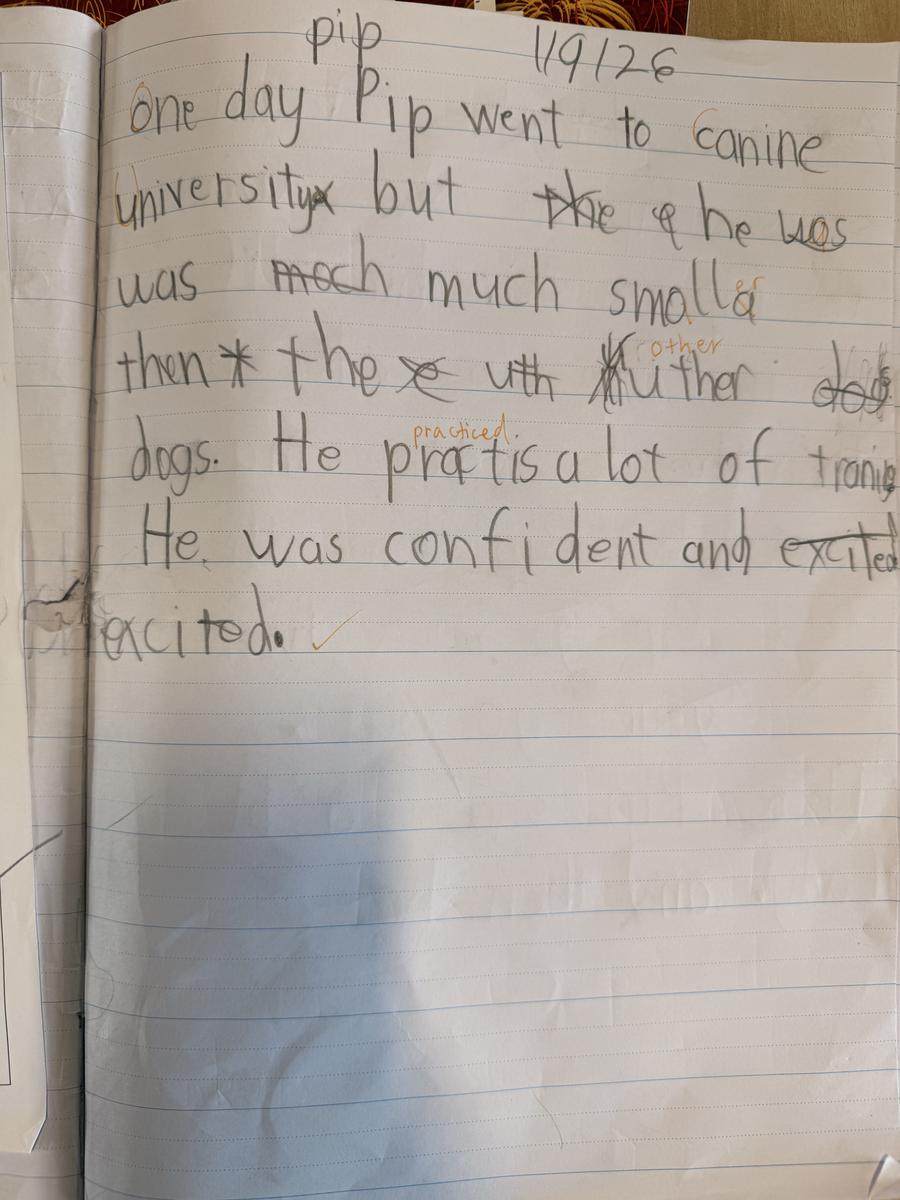 pip 1/9/26
One day Pip went to Canine
University but the he was
was moch much smaller
then the uth other uther dog
dogs. He practiced practis a lot of traning
He was confident and excited
excited.